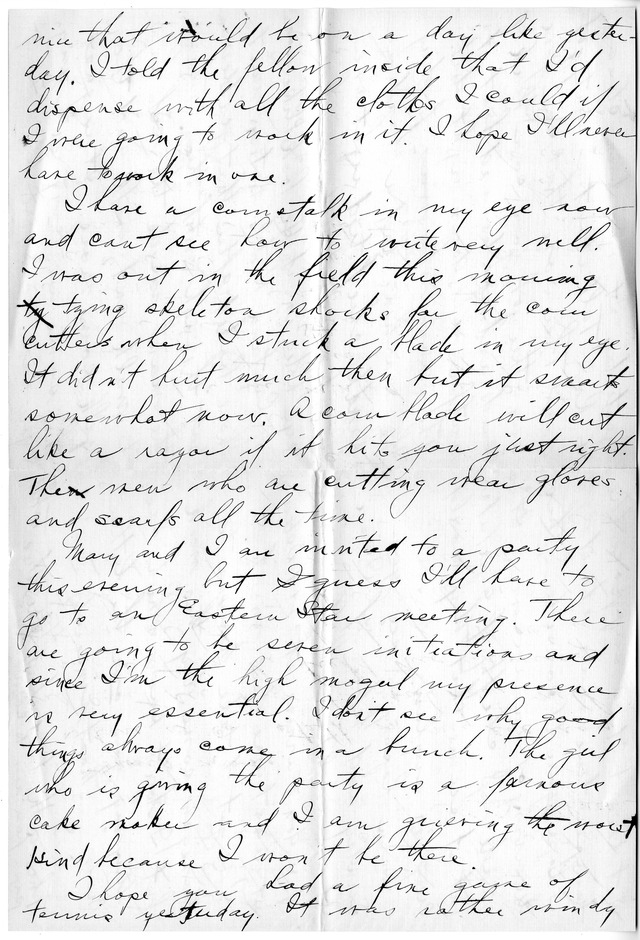 nice that would be on a day like yester-
day. I told the fellow inside that I'd
dispense with all the cloths I could if
I were going to work in it. I hope I'll never
have to work in one.
I have a cornstalk in my eye now
and cant see how to write very well.
I was out in the field this morning
ty tying skeleton shocks for the corn
cutters when I stuck a blade in my eye.
It didn't hurt much then but it smarts
somewhat now. A corn blade will cut
like a razor if it hits you just right.
The men who are cutting wear gloves
and scarfs all the time.
Mary and I are invited to a party
this evening but I guess I'll have to
go to an Eastern Star meeting. There
are going to be seven initiations and
since I'm the high mogul my presence
is very essential. I don't see why good
things always come in a bunch. The girl
who is giving the party is a famous
cake maker and I am grieving the worst
kind because I won't be there.
I hope you had a fine game of
tennis yesterday. It was rather windy